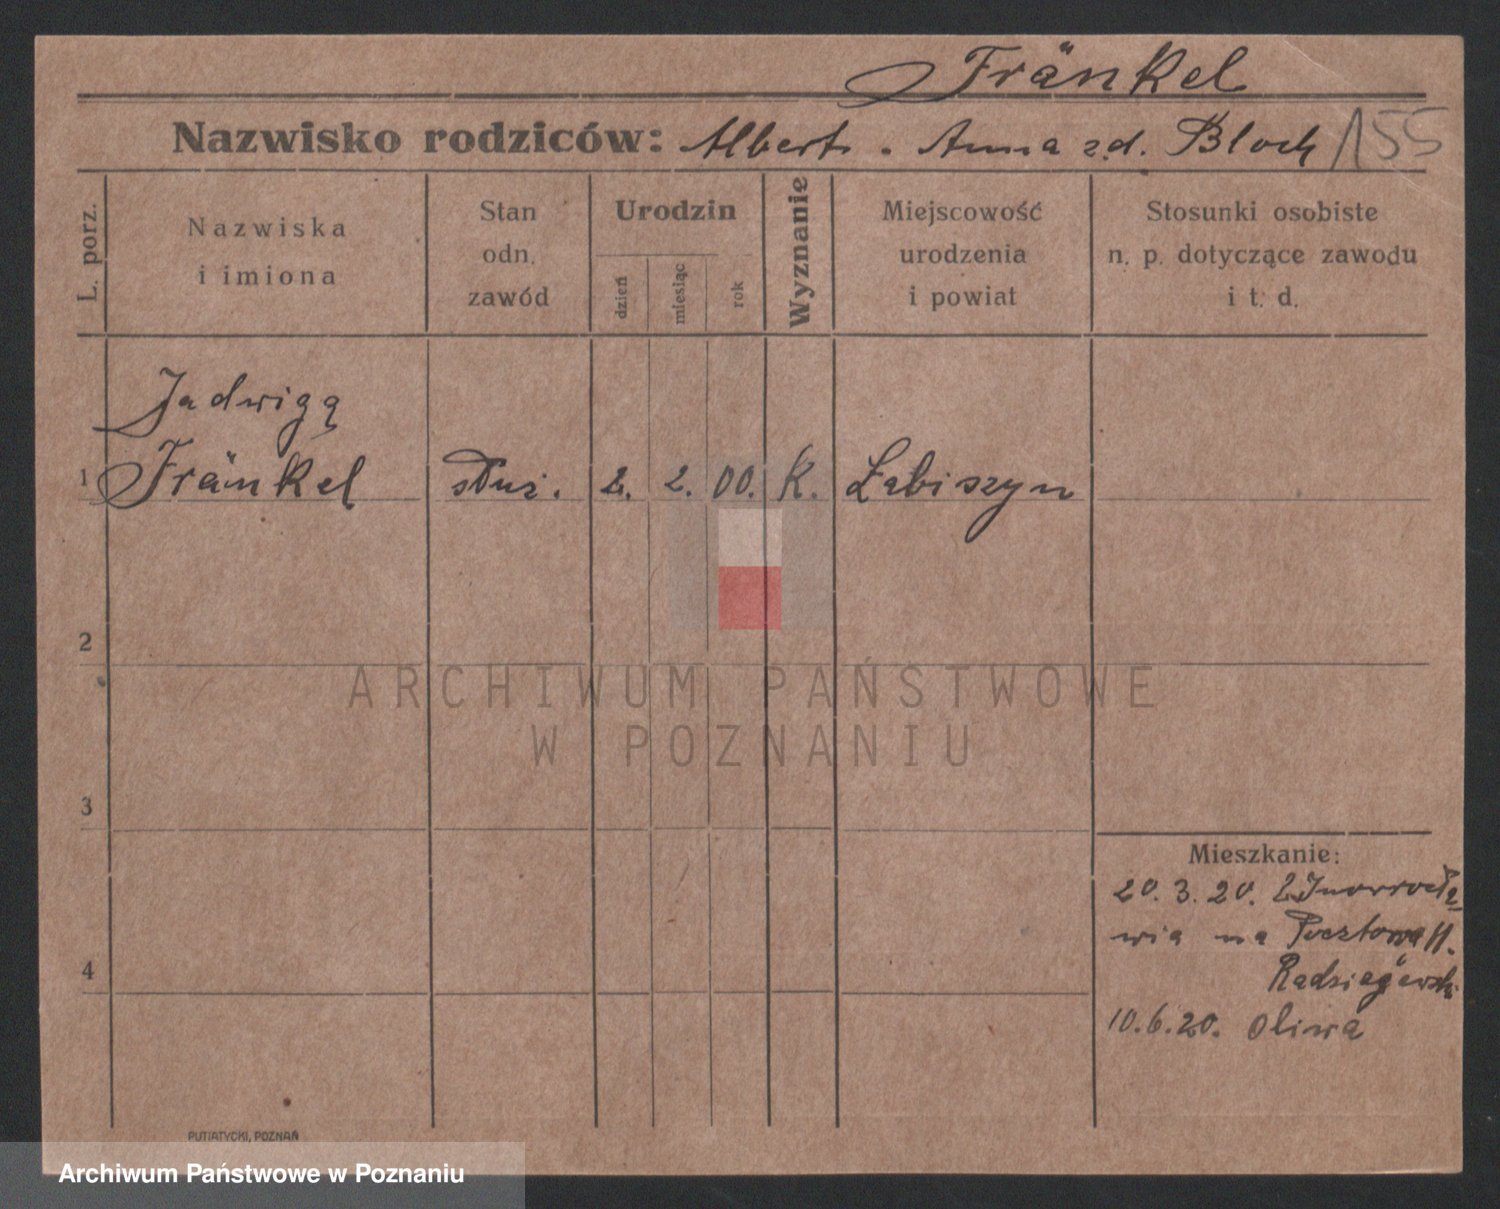 Fränkel
Nazwisko rodziców: Albert . Anna z.d. Bloch 155
L. porz.
Nazwiska
i imiona
Stan
odn.
zawód
Urodzin
dzień
miesiąc
rok
Wyznanie
Miejscowość
urodzenia
i powiat
Stosunki osobiste
n. p. dotyczące zawodu
i t. d.
Jadwigą
1 Fränkel służ. 2. 2. 00. K. Łabiszyn
2
ARCHIWUM PAŃSTWOWE
W POZNANIU
3
Mieszkanie:
20. 3. 20. Z Inowrocła
wia na Pocztowa 11.
4
10.6.20. Oliwa
PUTIATYCKI, POZNAŃ
Archiwum Państwowe w Poznaniu